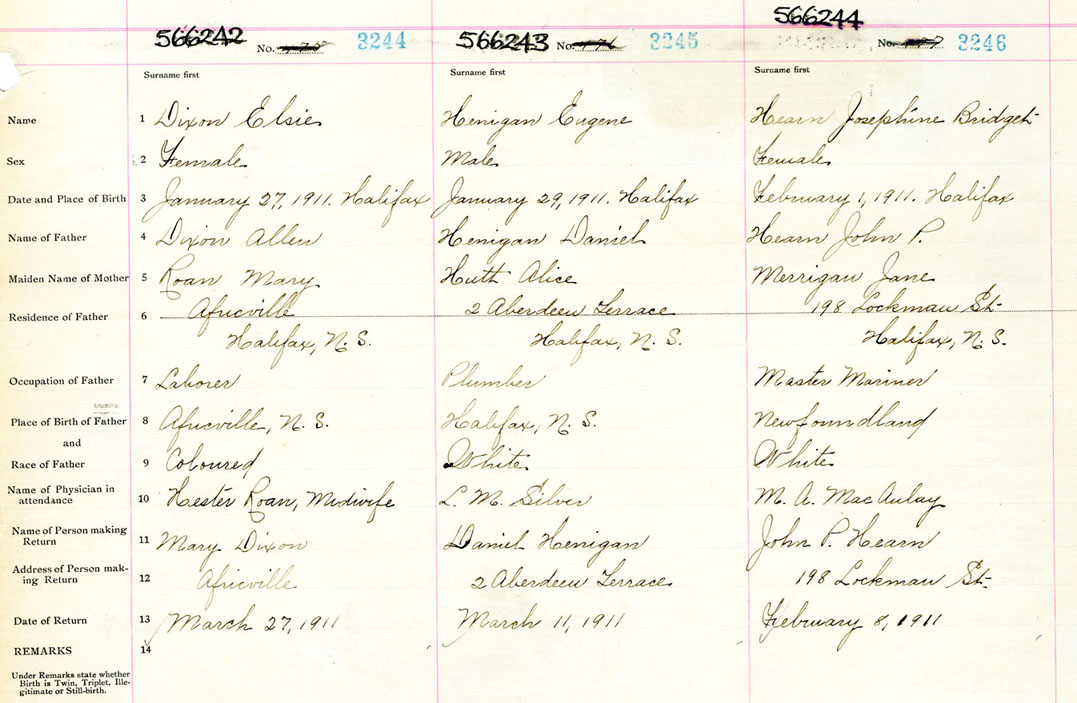 566242 No. 3244 566243 No. 3245 566244 No. 3246
Surname first Surname first Surname first
Name 1 Dixon Elsie Henigan Eugene Hearn Josephine Bridget
Sex 2 Female Male Female
Date and Place of Birth 3 January 27, 1911. Halifax January 29, 1911. Halifax February 1, 1911. Halifax
Name of Father 4 Dixon Allen Henigan Daniel Hearn John P.
Maiden Name of Mother 5 Roan Mary Huth Alice Merrigan Jane
Residence of Father 6 Africville 2 Aberdeen Terrace 198 Lockman St.
Halifax, N. S. Halifax, N. S. Halifax, N. S.
Occupation of Father 7 Laborer Plumber Master Mariner
Place of Birth of Father 8 Africville, N. S. Halifax, N. S. Newfoundland
and
Race of Father 9 Coloured White White
Name of Physician in attendance 10 Hester Roan, Midwife L. M. Silver M. A. MacAulay
Name of Person making Return 11 Mary Dixon Daniel Henigan John P. Hearn
Address of Person mak-
ing Return 12 Africville 2 Aberdeen Terrace 198 Lockman St.
Date of Return 13 March 27, 1911 March 11, 1911 February 8, 1911
REMARKS 14
Under Remarks state whether
Birth is Twin, Triplet, Ille-
gitimate or Still-birth.